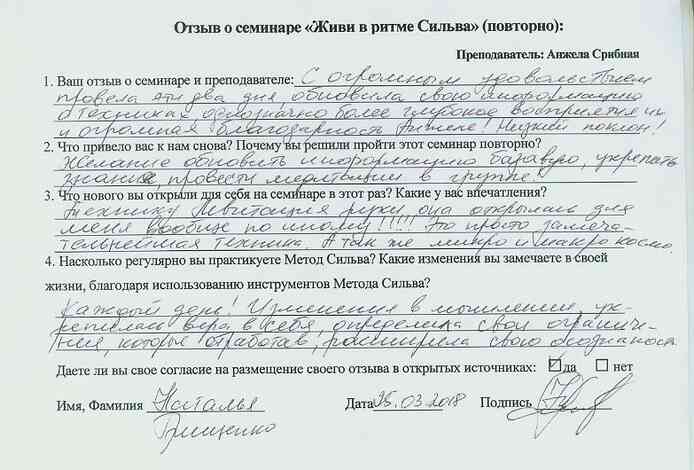 Отзыв о семинаре «Живи в ритме Сильва» (повторно):
Преподаватель: Анжела Срибная
1. Ваш отзыв о семинаре и преподавателе: С огромным удовольствием
провела эти два дня, обновила свою информацию
о техниках, однозначно более глубокое восприятие их
и огромная благодарность Анжеле! Низкий поклон!
2. Что привело вас к нам снова? Почему вы решили пройти этот семинар повторно?
Желание обновить информацию базовую, укрепить
знания, провести медитации в группе.
3. Что нового вы открыли для себя на семинаре в этот раз? Какие у вас впечатления?
Технику Левитация руки, она открылась для
меня вообще по иному!!!!! Это просто замеча-
тельнейшая техника. А так же микро и макро космо.
4. Насколько регулярно вы практикуете Метод Сильва? Какие изменения вы замечаете в своей
жизни, благодаря использованию инструментов Метода Сильва?
Каждый день! Изменения в мышлении, ук-
репилась вера в себя, определила свои ограниче-
ния, которые отработав, расширила свою осознаность
Даете ли вы свое согласие на размещение своего отзыва в открытых источниках: да нет
Имя, Фамилия Наталья Дата 25.03.2018 Подпись